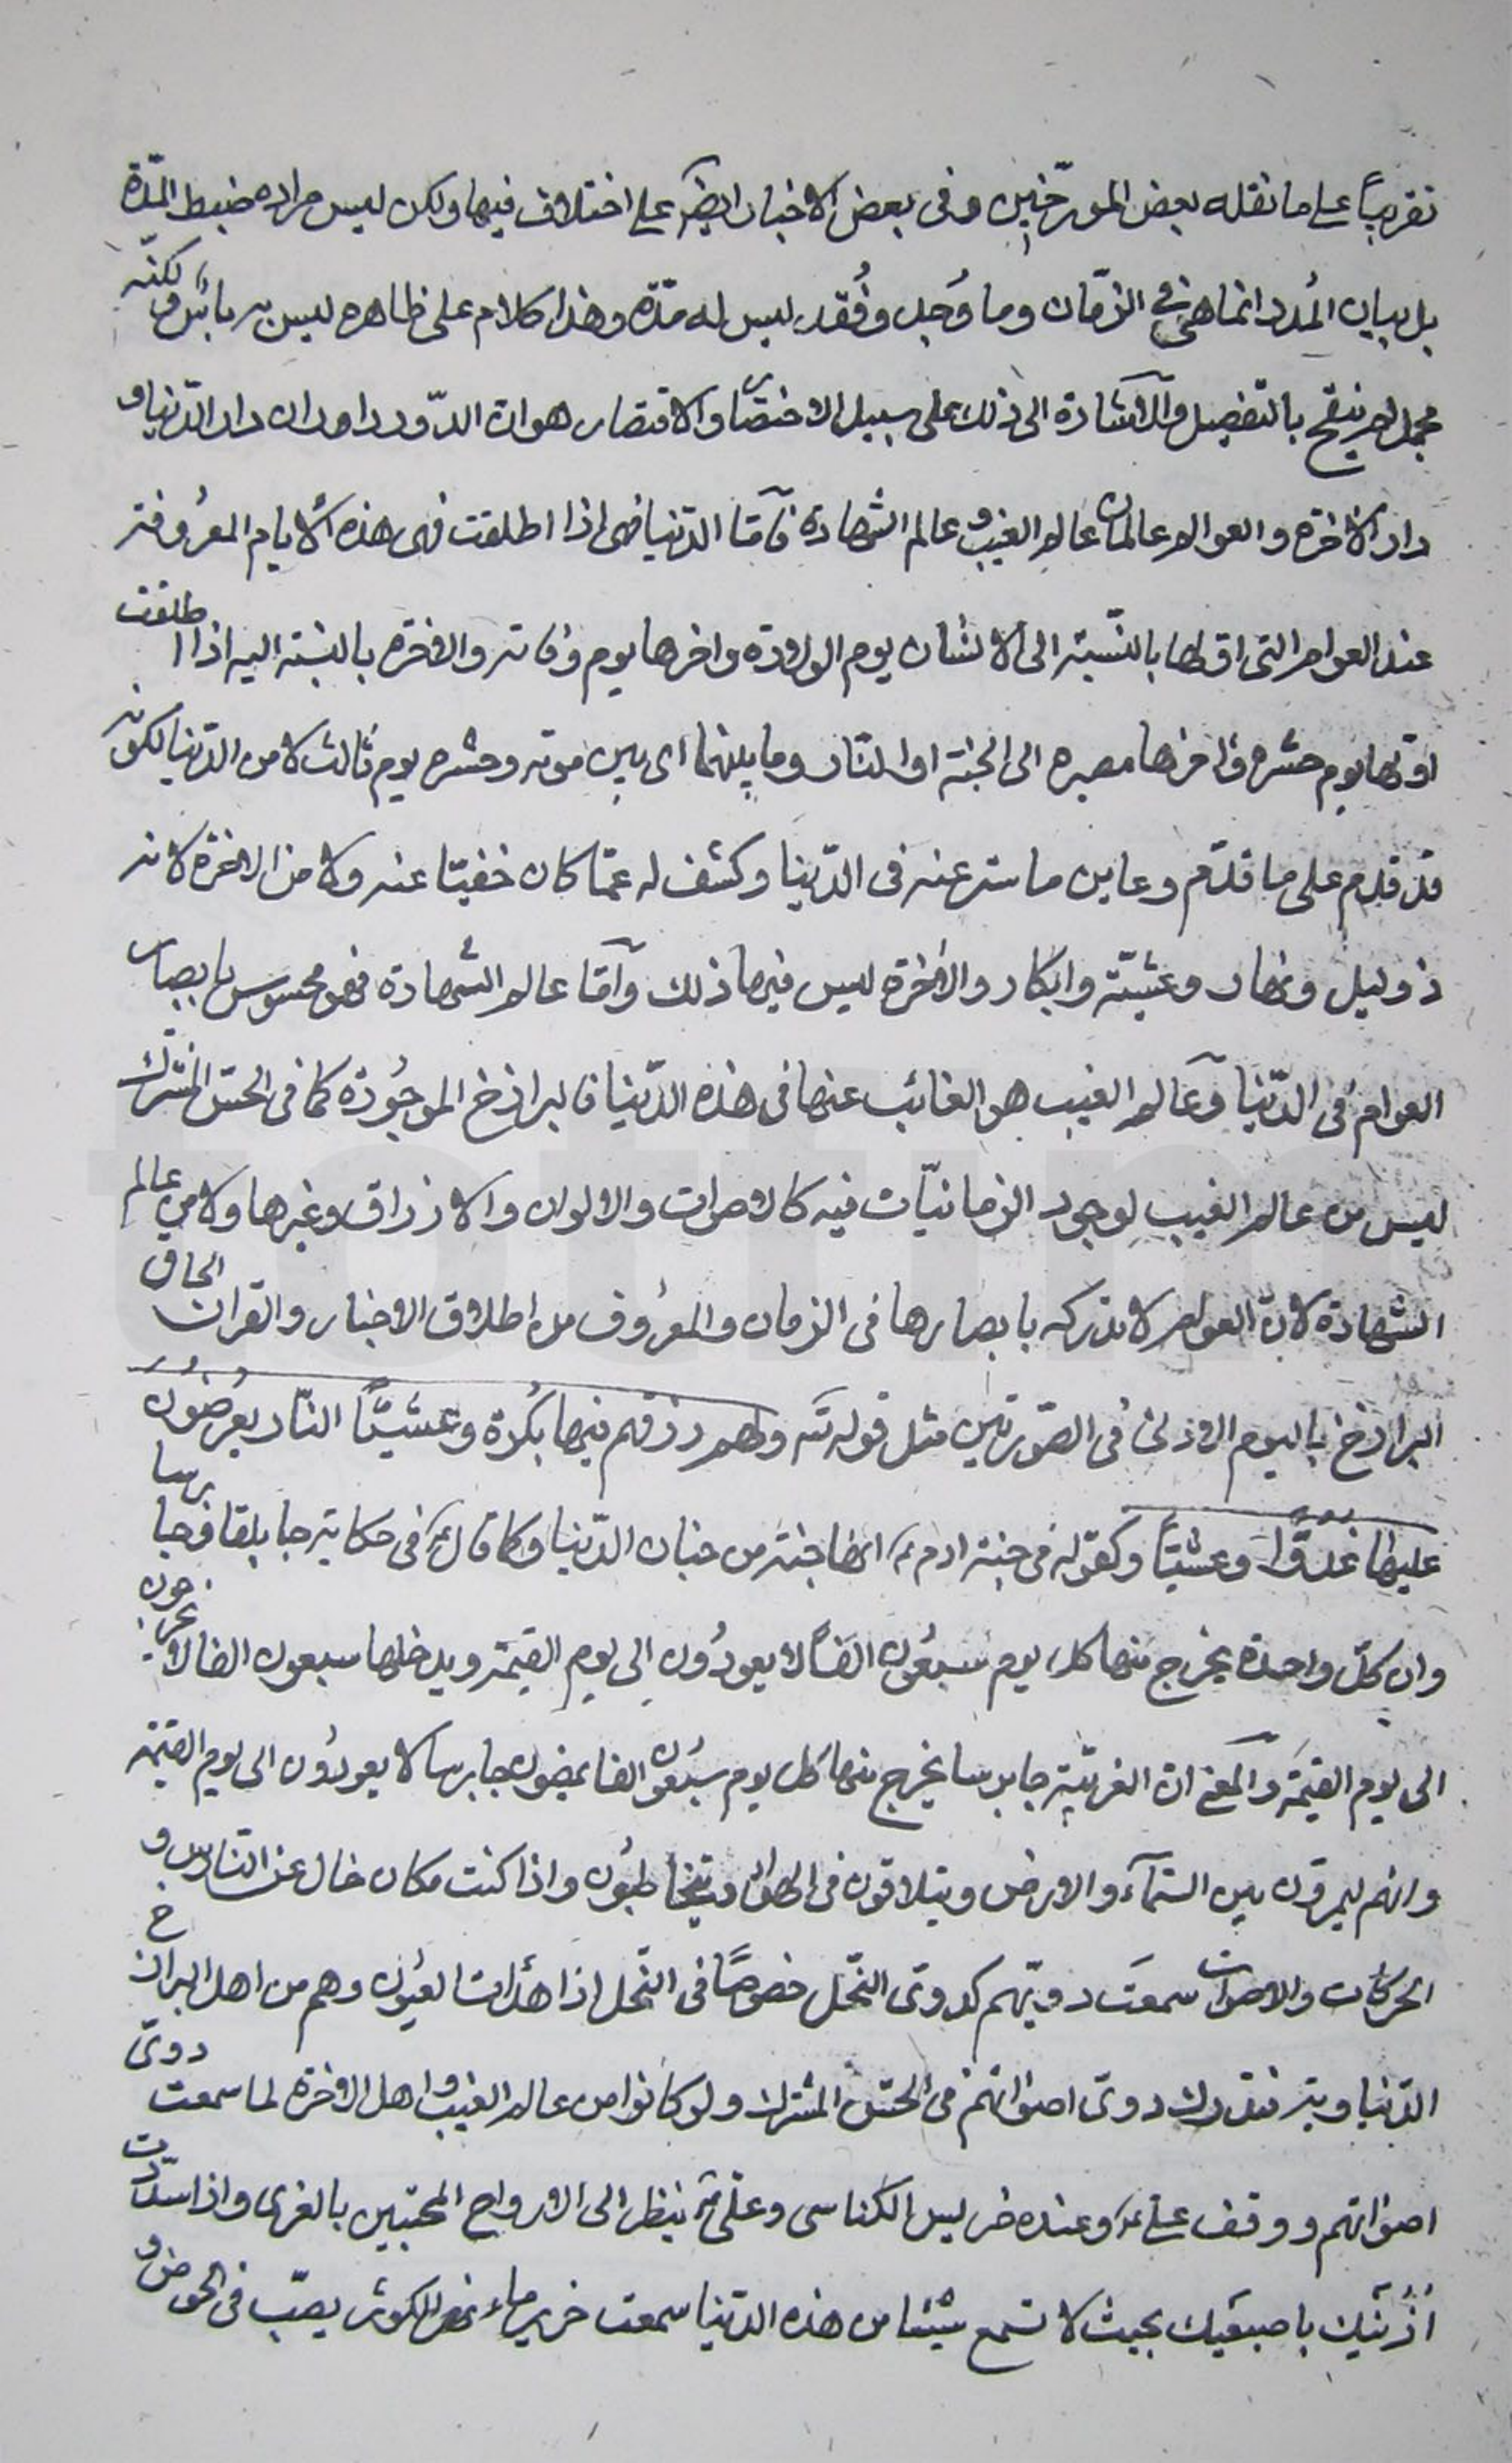 تقريباً على ما نقله بعض المورّخين وفى بعض الاخبار ايضاً على اختلاف فيها ولكن ليس مراده ضبط المدّة
بل بيان المُدد انما هى فى الزمان وما وُجِد وفُقد ليس له مدّة وهذا كلام على ظاهره ليس به بأس ولكنّه
مجمل لم ينقح بالتفصيل والاشارة الى ذلك على سبيل الاختصار والاقتصار هو ان الدّور داران دار الدّنيا و
دار الاخرة والعوالم عالمان عالم الغيب و عالم الشهادة فامّا الدّنيا فهى اذا اطلقت فهى هذه الايام المعروفة
عند العوام التى اوّلها بالنّسبة الى الانسان يوم الولادة واخرها يوم وفاته والاخرة بالنسبة اليه اذا اطلقت
اوّلها يوم حشره واخرها مصيره الى الجنة او النّار وما بينهما اى بين موته وحشره يوم ثالث لا من الدّنيا لكونه
قد قدم على ما قدّم وعاين ما ستر عنه فى الدّنيا وكشف له عمّا كان خفيّا عنه ولا من الاخرة لانه
ذو ليل ونهار وعشيّة وابكار والاخرة ليس فيها ذلك وامّا عالم الشهادة فهو محسوس بابصار
العوام فى الدّنيا وعالم الغيب هو الغائب عنها فى هذه الدّنيا فالبرازخ الموجُودة كما فى الحسّ المشترك
ليس من عالم الغيب لوجود الزمانيّات فيه كالاصوات والالوان والارزاق وغيرها ولا من عالم
الشهادة لانّ العوام لا تدركه بابصارها فى الزمان والمعروف من اطلاق الاخبار والقران الحاق
البرازخ باليوم الاوّل فى الصّورتين مثل قوله تع ولهم رزقهم فيها بُكرة وعشيّاً النّار يعرضون
عليها غدوّاً وعشيّاً وكقوله فى جنة ادم ع انها جنة من جنان الدّنيا وكما قال ع فى حكاية جابلقا وجابرسا
وان كلّ واحدة يخرج منها كل يوم سبعُون الفاً لا يعودُون الى يوم القيمة ويدخلها سبعون الفا لا يخرجون
الى يوم القيمة والمعنى ان الغربيّة جابرسا يخرج منها كل يوم سبعُون الفا يمضون جابرسا لا يعودُون الى يوم القيمة
وانهم ليمرّون بين السّمآء والارض ويتلاقون فى الهوا ويتخاطبُون واذا كنت مكان خال عن النّاس و
الحركات والاصوات سمعَت دويّهم كدوى النّحل خصوصاً فى النحل اذا هدأت العيُون وهم من اهل البرازخ
الدّنياوية فتدرك دوىّ اصواتهم فى الحسّ المشترك ولو كانوا من عالم الغيب و اهل الاخرة لما سمعت دوىّ
اصواتهم ووقف على ع وعنده خر ليس الكناسى وعلى ع ينظر الى الارواح المحتبين بالغرى واذا سدّدت
اذُنَيك باصبعَيك بحيث لا تسمع شيئا من هذه الدّنيا سمعت خرير ماء نهر الكوثر يصبّ فى الحوض و